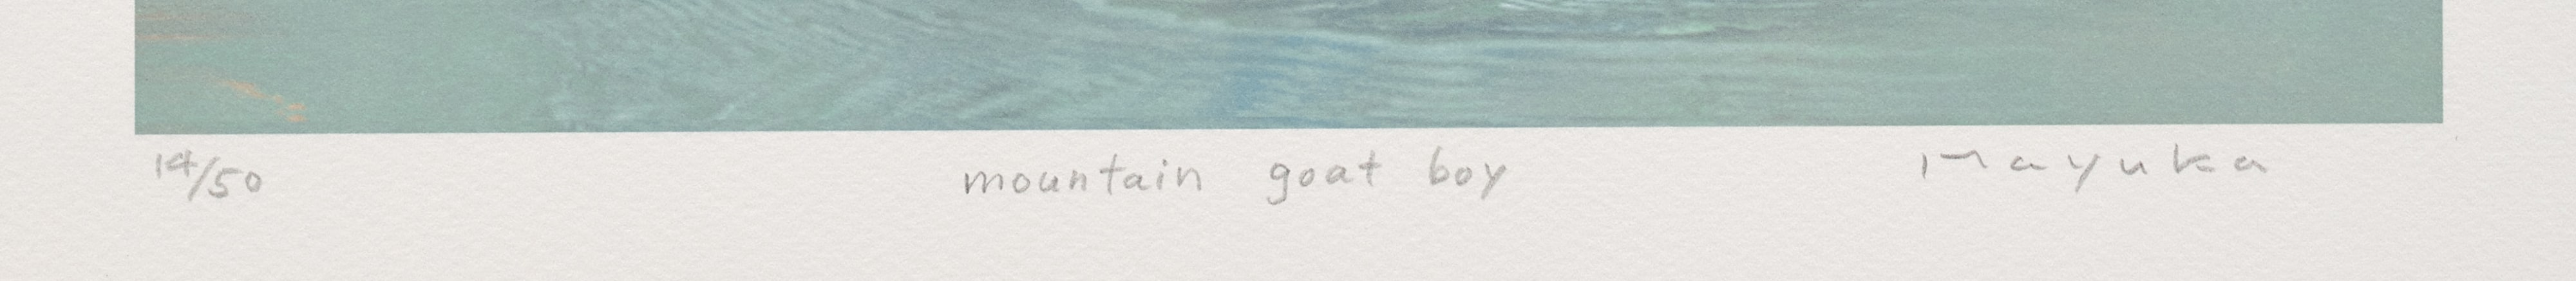 14/50 mountain goat boy Mayuka